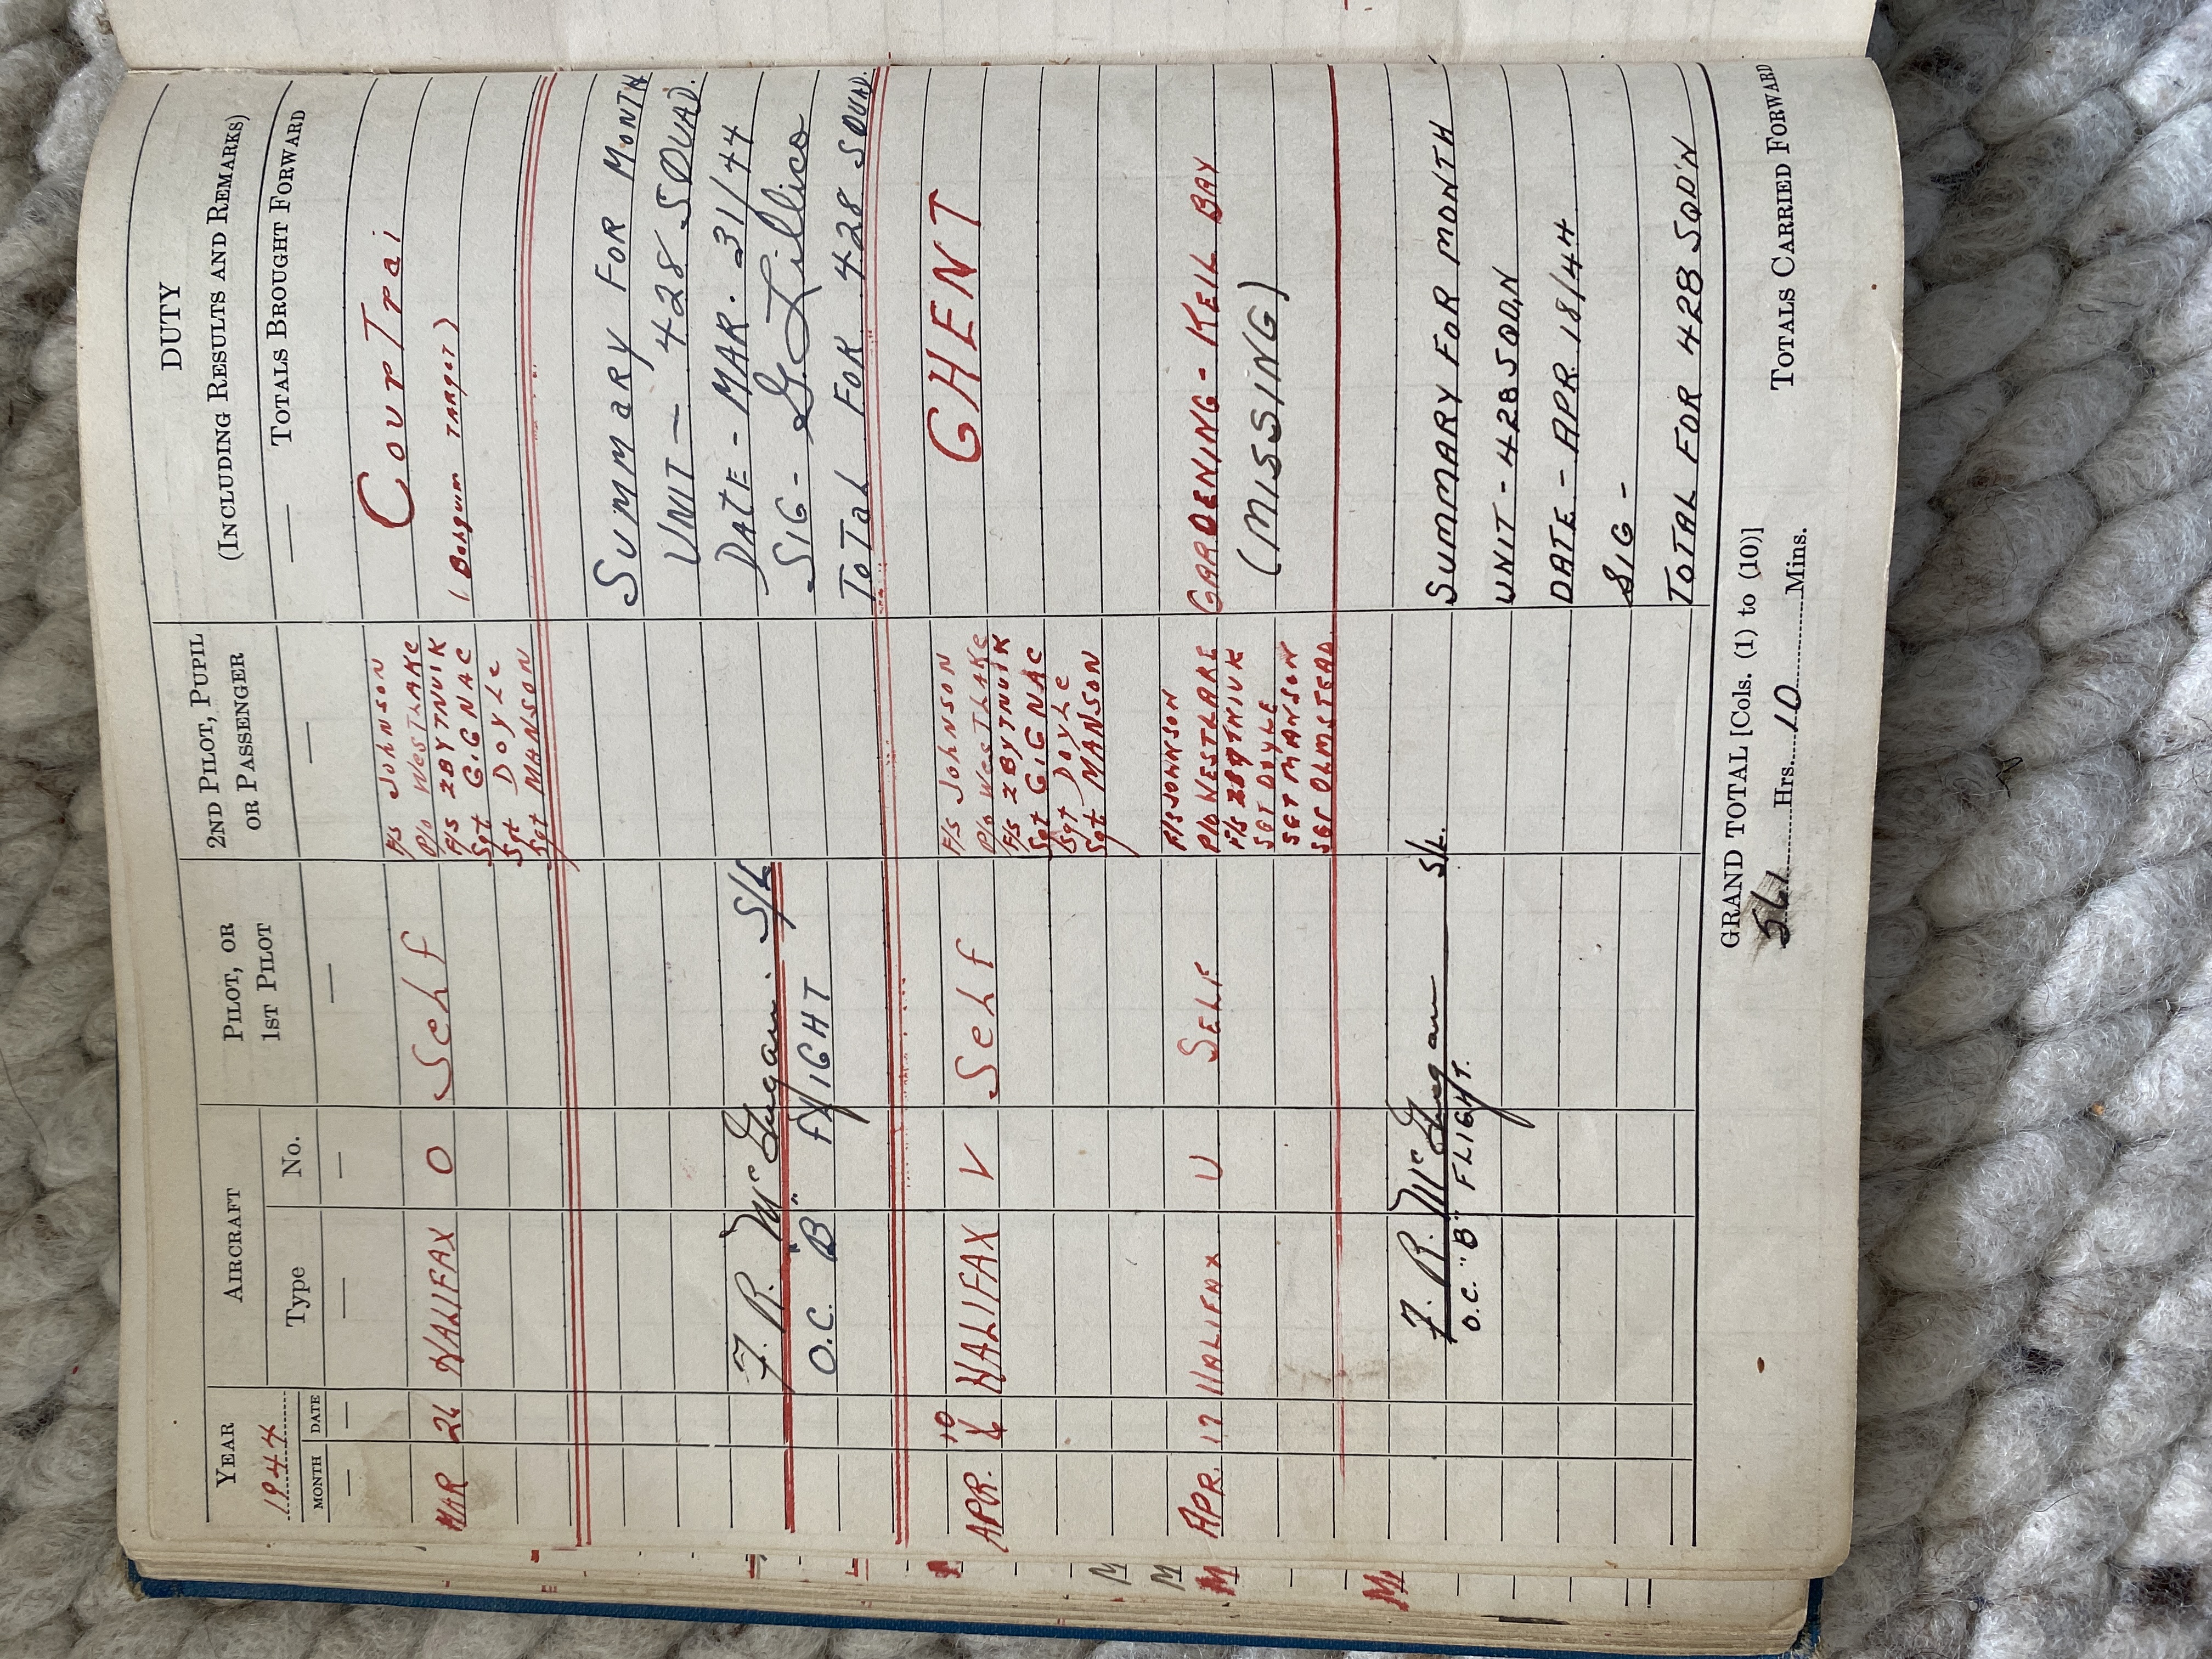 YEAR
1944
AIRCRAFT
PILOT, OR
1ST PILOT
2ND PILOT, PUPIL
OR PASSENGER
DUTY
(INCLUDING RESULTS AND REMARKS)
MONTH DATE Type No.
— — — — — — — TOTALS BROUGHT FORWARD
MAR 26 HALIFAX O Self
F/S JOHNSON
P/O WESTLAKE
F/S ZBYTNUIK
Sgt GIGNAC
Sgt DOYLE
Sgt MANSON
CourTrai
(Belgum TARGET)
Summary For Month
UNIT — 428 SQUAD.
DATE - MAR. 31/44
SIG - G Lillico
ToTal FOR 428 SQUAD.
F. R. McGugan S/L
O.C. "B" FLIGHT
APR. 10 HALIFAX V Self
F/S JOHNSON
P/O WESTLAKE
F/S ZBYTNUIK
Sgt GIGNAC
Sgt DOYLE
Sgt MANSON
GHENT
APR. 17 HALIFAX U SELF
F/S JOHNSON
P/O WESTLAKE
F/S ZBYTNIUK
SGT DOYLE
SGT MANSON
SGT OLMSTEAD
GARDENING - KEIL BAY
(MISSING)
F. R. McGugan S/L.
O.C. "B" FLIGHT.
SUMMARY FOR MONTH
UNIT - 428 SQDN
DATE - APR 18/44
SIG -
TOTAL FOR 428 SQD'N
GRAND TOTAL [Cols. (1) to (10)]
561 Hrs. 10 Mins.
TOTALS CARRIED FORWARD